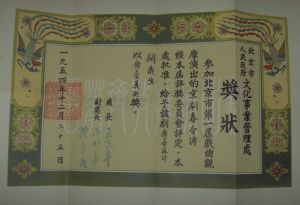 北京市
人民政府
文化事業管理處
獎狀
參加北京市第一屆戲曲觀
摩演出的京劇春香傳
經本届評獎委員會評定，本
處批准，給予該劇舞臺設計
關義生
以舞臺美術獎。
處長
副處長
一九五四年十二月二十五日